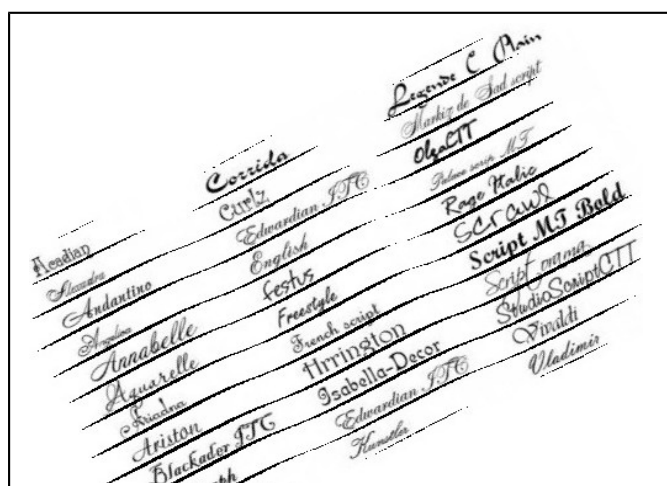 Acadian
Alexandra
Andantino
Angelina
Annabelle
Aquarelle
Ariadna
Ariston
Blackadder ITC
Corrida
Curlz
Edwardian ITC
English
festus
Freestyle
French script
Hrrington
Isabella-Decor
Edwardian ITC
Kunstler
Legende C Plain
Markiz de Sad script
OlgaCTT
Palace scrip MT
Rage Italic
Scrawl
Script MT Bold
Scriptorama
StudioScriptCTT
Vivaldi
Vladimir